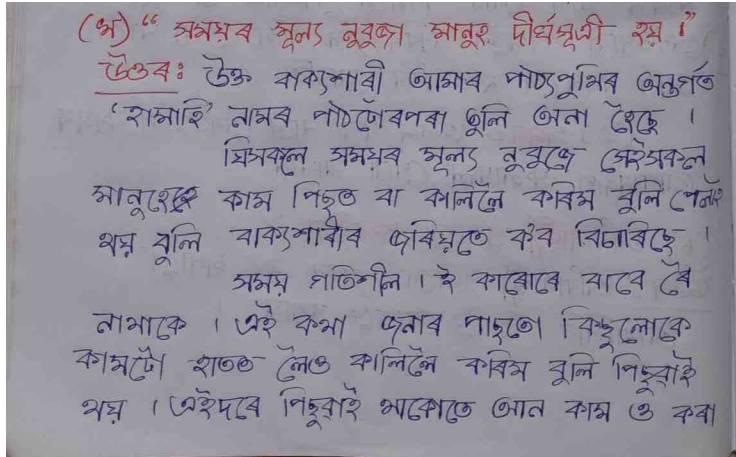 (খ) “ সময়ৰ মূল্য নুবুজা মানুহ দীৰ্ঘসূত্ৰী হয় ।”
উত্তৰঃ উক্ত বাক্যশাৰী আমাৰ পাঠ্যপুথিৰ অন্তৰ্গত
‘হামাহি’ নামৰ পাঠটোৰপৰা তুলি অনা হৈছে ।
যিসকলে সময়ৰ মূল্য নুবুজে সেইসকল
মানুহেহে কাম পিছত বা কালিলৈ কৰিম বুলি পেলাই
থয় বুলি বাক্যশাৰীৰ জৰিয়তে কব বিচাৰিছে ।
সময় গতিশীল । ই কাৰোৱে বাবে ৰৈ
নাথাকে । এই কথা জনাৰ পাছতো কিছুলোকে
কামটো হাতত লৈও কালিলৈ কৰিম বুলি পিছুৱাই
থয় । এইদৰে পিছুৱাই থাকোতে আন কাম ও কৰা